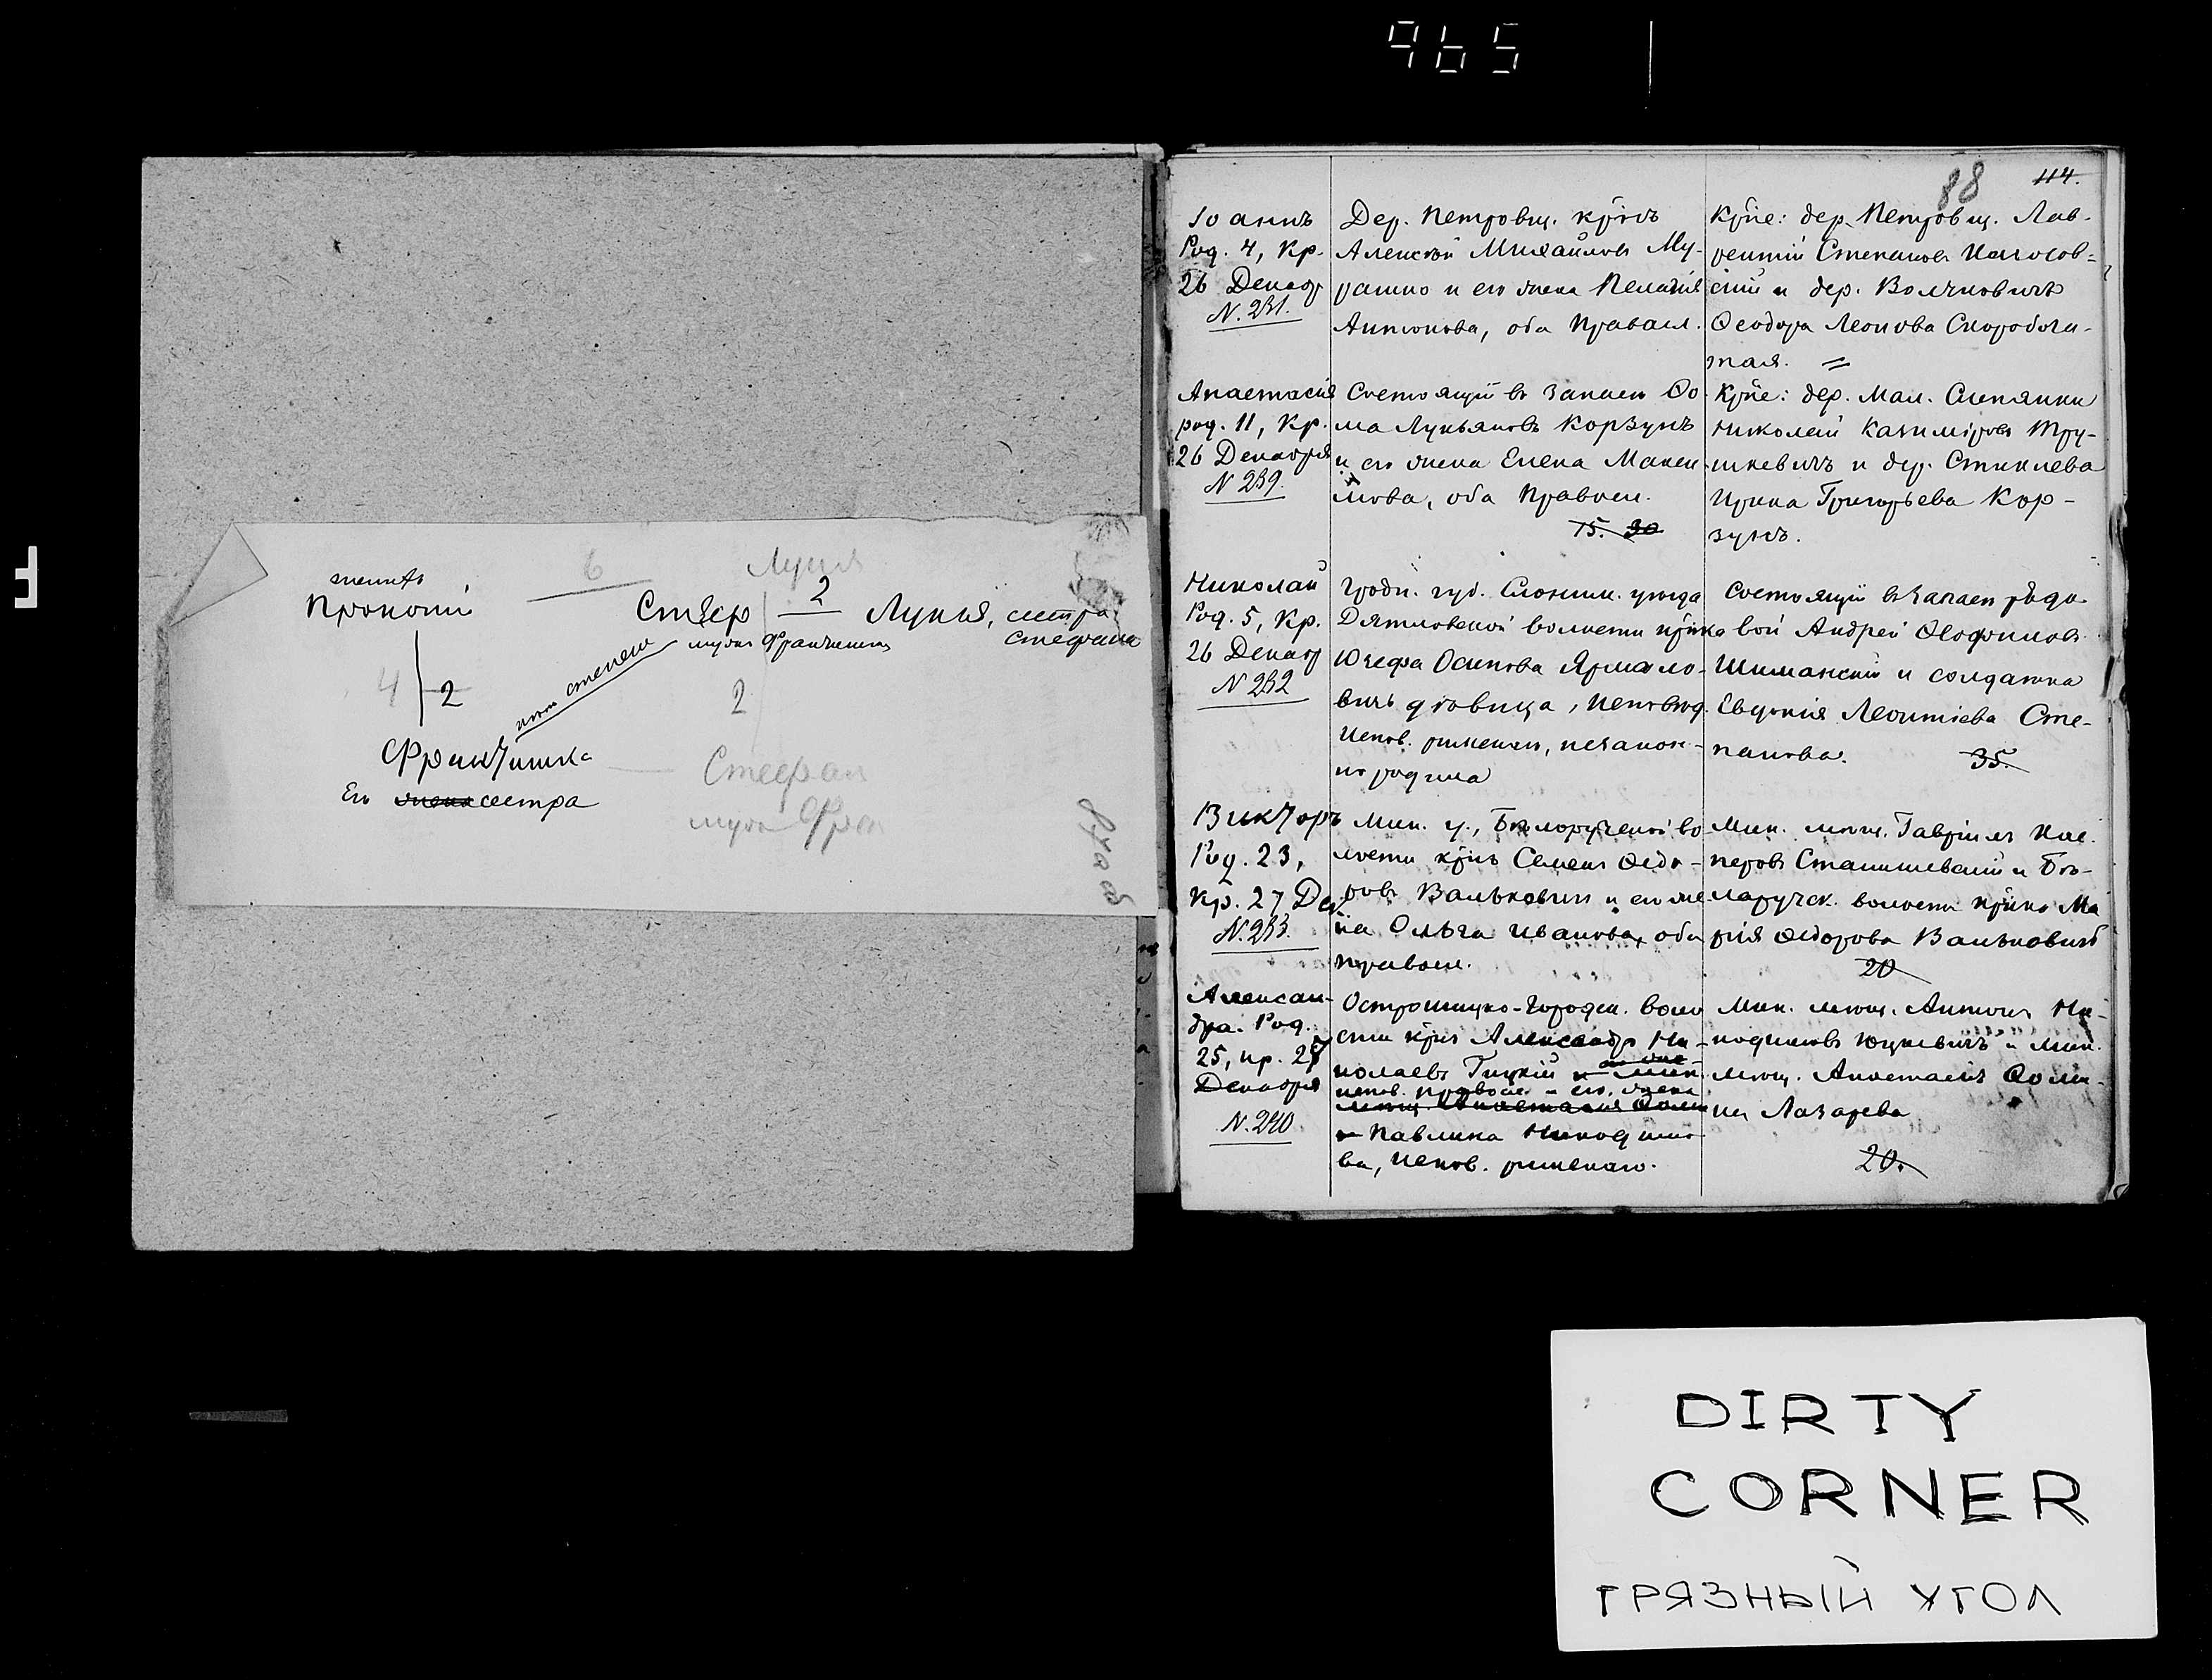 965
женихъ
Прокопій
6
Луція
Стеф
2
Лукія, сестра
Стефана
мужъ Франчишки
степень
4
2
2
Франчишка
Его жена сестра
Стефан
мужъ Фран
88
114.
Іоаннъ
Род. 4, Кр.
26 Декабр
N. 231.
Дер. Петровщ. кр̃нъ
Алексѣй Михайловъ Му-
рашко и его жена Пелагія
Антонова, оба Правосл.
Кр̃не: дер. Петровщ. Лав-
рентій Степановъ
и дер. Волчковичъ
Ѳеодора Леонова Скоробога-
тая.
Анастасія
род. 11, Кр.
26 Декабря
N 239.
Состоящій въ запасѣ Ѳо-
ма Лукьяновъ Корзунъ
и его жена Елена Макси-
мова, оба Правосл.
15. 30
Кр̃не: дер. Мал. Слепянки
Николай Казиміровъ Тру-
шкевичъ и дер. Стиклева
Ирина Григорьева Кор-
зунъ.
Николай
Род. 5, Кр.
26 Декабр
N 232
Гродн. губ. Слоним. уѣзда
Дятловской волости кр̃нка
Юзефа Осипова Ярмоло-
вичъ дѣвица,
испов. римскаго, незакон-
но родила
Состоящій въ запасѣ рядо-
вой Андрей
Шиманскій и солдатка
Евдокія Леонтіева Сте-
панова.
35.
Викторъ
Род. 23,
Кр. 27 Дек.
N. 233.
Мин. у., Бѣлоручской во-
лости кр̃нъ Семенъ Ѳедо-
ровъ Вальковичъ и его же-
на Ольга Иванова, оба
правосл.
Мин. мѣщ. Гавріилъ Кас-
перовъ Станишевскій и Бѣ-
лоручск. волости кр̃нка Ма-
рія Ѳедорова Вальковичъ
20
Алексан-
дра. Род.
25, кр. 27
Декабря
N. 240
Острошицко-Городск. воло-
сти кр̃нъ Александръ Ни-
колаевъ Гицкій
испов. правосл. и его жена
Павлина Никодимо-
ва, испов. римскаго.
Мин. мѣщ. Антонъ Ни-
кодимовъ Юцкевичъ и мин.
мѣщ. Анастасія Ѳоми-
на Лазарева
20.
DIRTY
CORNER
ГРЯЗНЫЙ УГОЛ